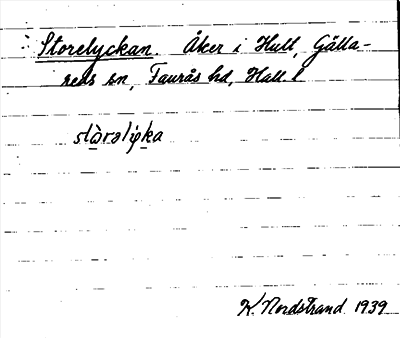 Storelyckan. Åker i Hull, Gälla-
reds sn, Faurås hd, Hall. l
K. Nordstrand 1939